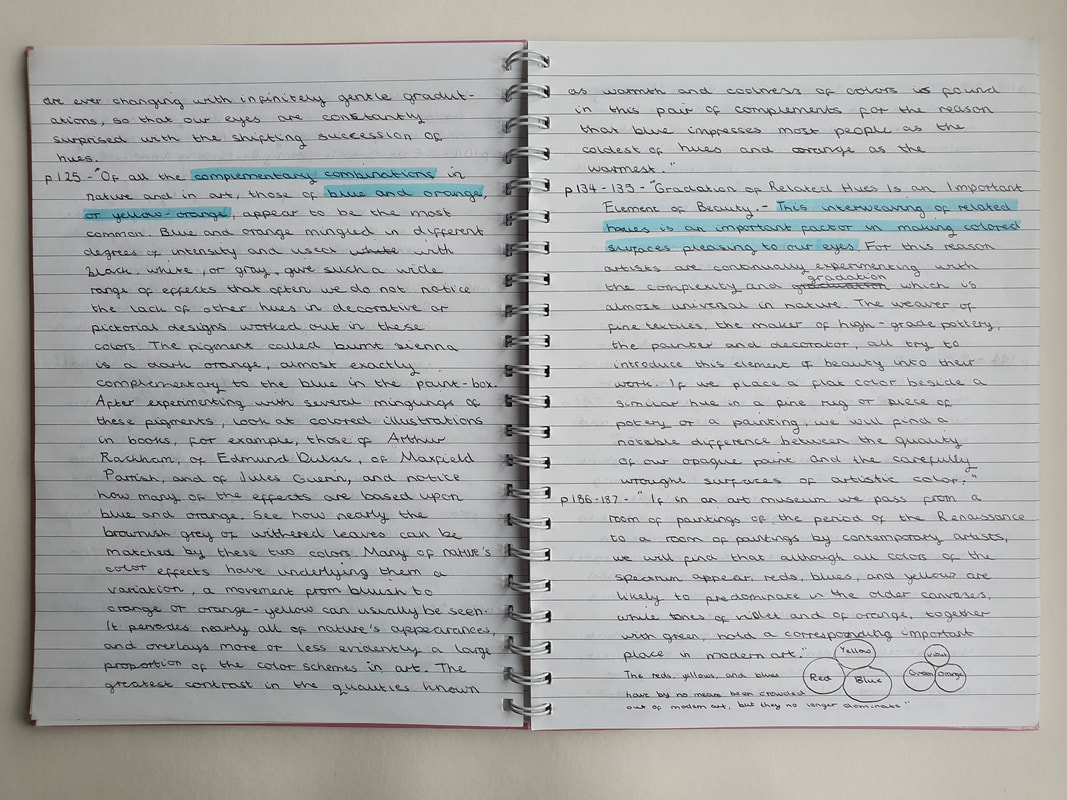 are ever changing with infinitely gentle gradut-
ations, so that our eyes are constantly
surprised with the shifting succession of
hues.
p125 - "Of all the complementary combinations in
nature and in art, those of blue and orange,
or yellow-orange, appear to be the most
common. Blue and orange mingled in different
degrees of intensity and used white with
black, white, or gray, give such a wide
range of effects that often we do not notice
the lack of other hues in decorative or
pictorial designs worked out in these
colors. The pigment called burnt sienna
is a dark orange, almost exactly
complementary to the blue in the paint-box.
After experimenting with several minglings of
these pigments, look at colored illustrations
in books, for example, those of Arthur
Rackham, of Edmund Dulac, of Maxfield
Parrish, and of Jules Guerin, and notice
how many of the effects are based upon
blue and orange. See how nearly the
brownish grey of withered leaves can be
matched by these two colors. Many of nature's
color effects have underlying them a
variation, a movement from bluish to
orange or orange-yellow can usually be seen.
It pervades nearly all of nature's appearances,
and overlays more or less evidently a large
proportion of the color schemes in art. The
greatest contrast in the qualities known
as warmth and coolness of colors is found
in this pair of complements for the reason
that blue impresses most people as the
coldest of hues and orange as the
warmest."
p134-135 - "Gradation of Related Hues Is an Important
Element of Beauty. - This interweaving of related
hues is an important factor in making colored
surfaces pleasing to our eyes. For this reason
artists are continually experimenting with
the complexity and gradation which is
almost universal in nature. The weaver of
fine textiles, the maker of high-grade pottery,
the painter and decorator, all try to
introduce this element of beauty into their
work. If we place a flat color beside a
similar hue in a fine rug or piece of
potery or a painting, we will find a
notable difference between the quality
of our opaque paint and the carefully
wrought surfaces of artistic color."
p186-187 - "If in an art museum we pass from a
room of paintings of the period of the Renaissance
to a room of paintings by contemporary artists,
we will find that although all colors of the
spectrum appear, reds, blues, and yellows are
likely to predominate in the older canvases,
while tones of violet and of orange, together
with green, hold a corresponding important
place in modern art."
The reds, yellows, and blues
have by no means been crowded
out of modern art, but they no longer dominate"
Yellow
Red
Blue
Violet
Green
Orange